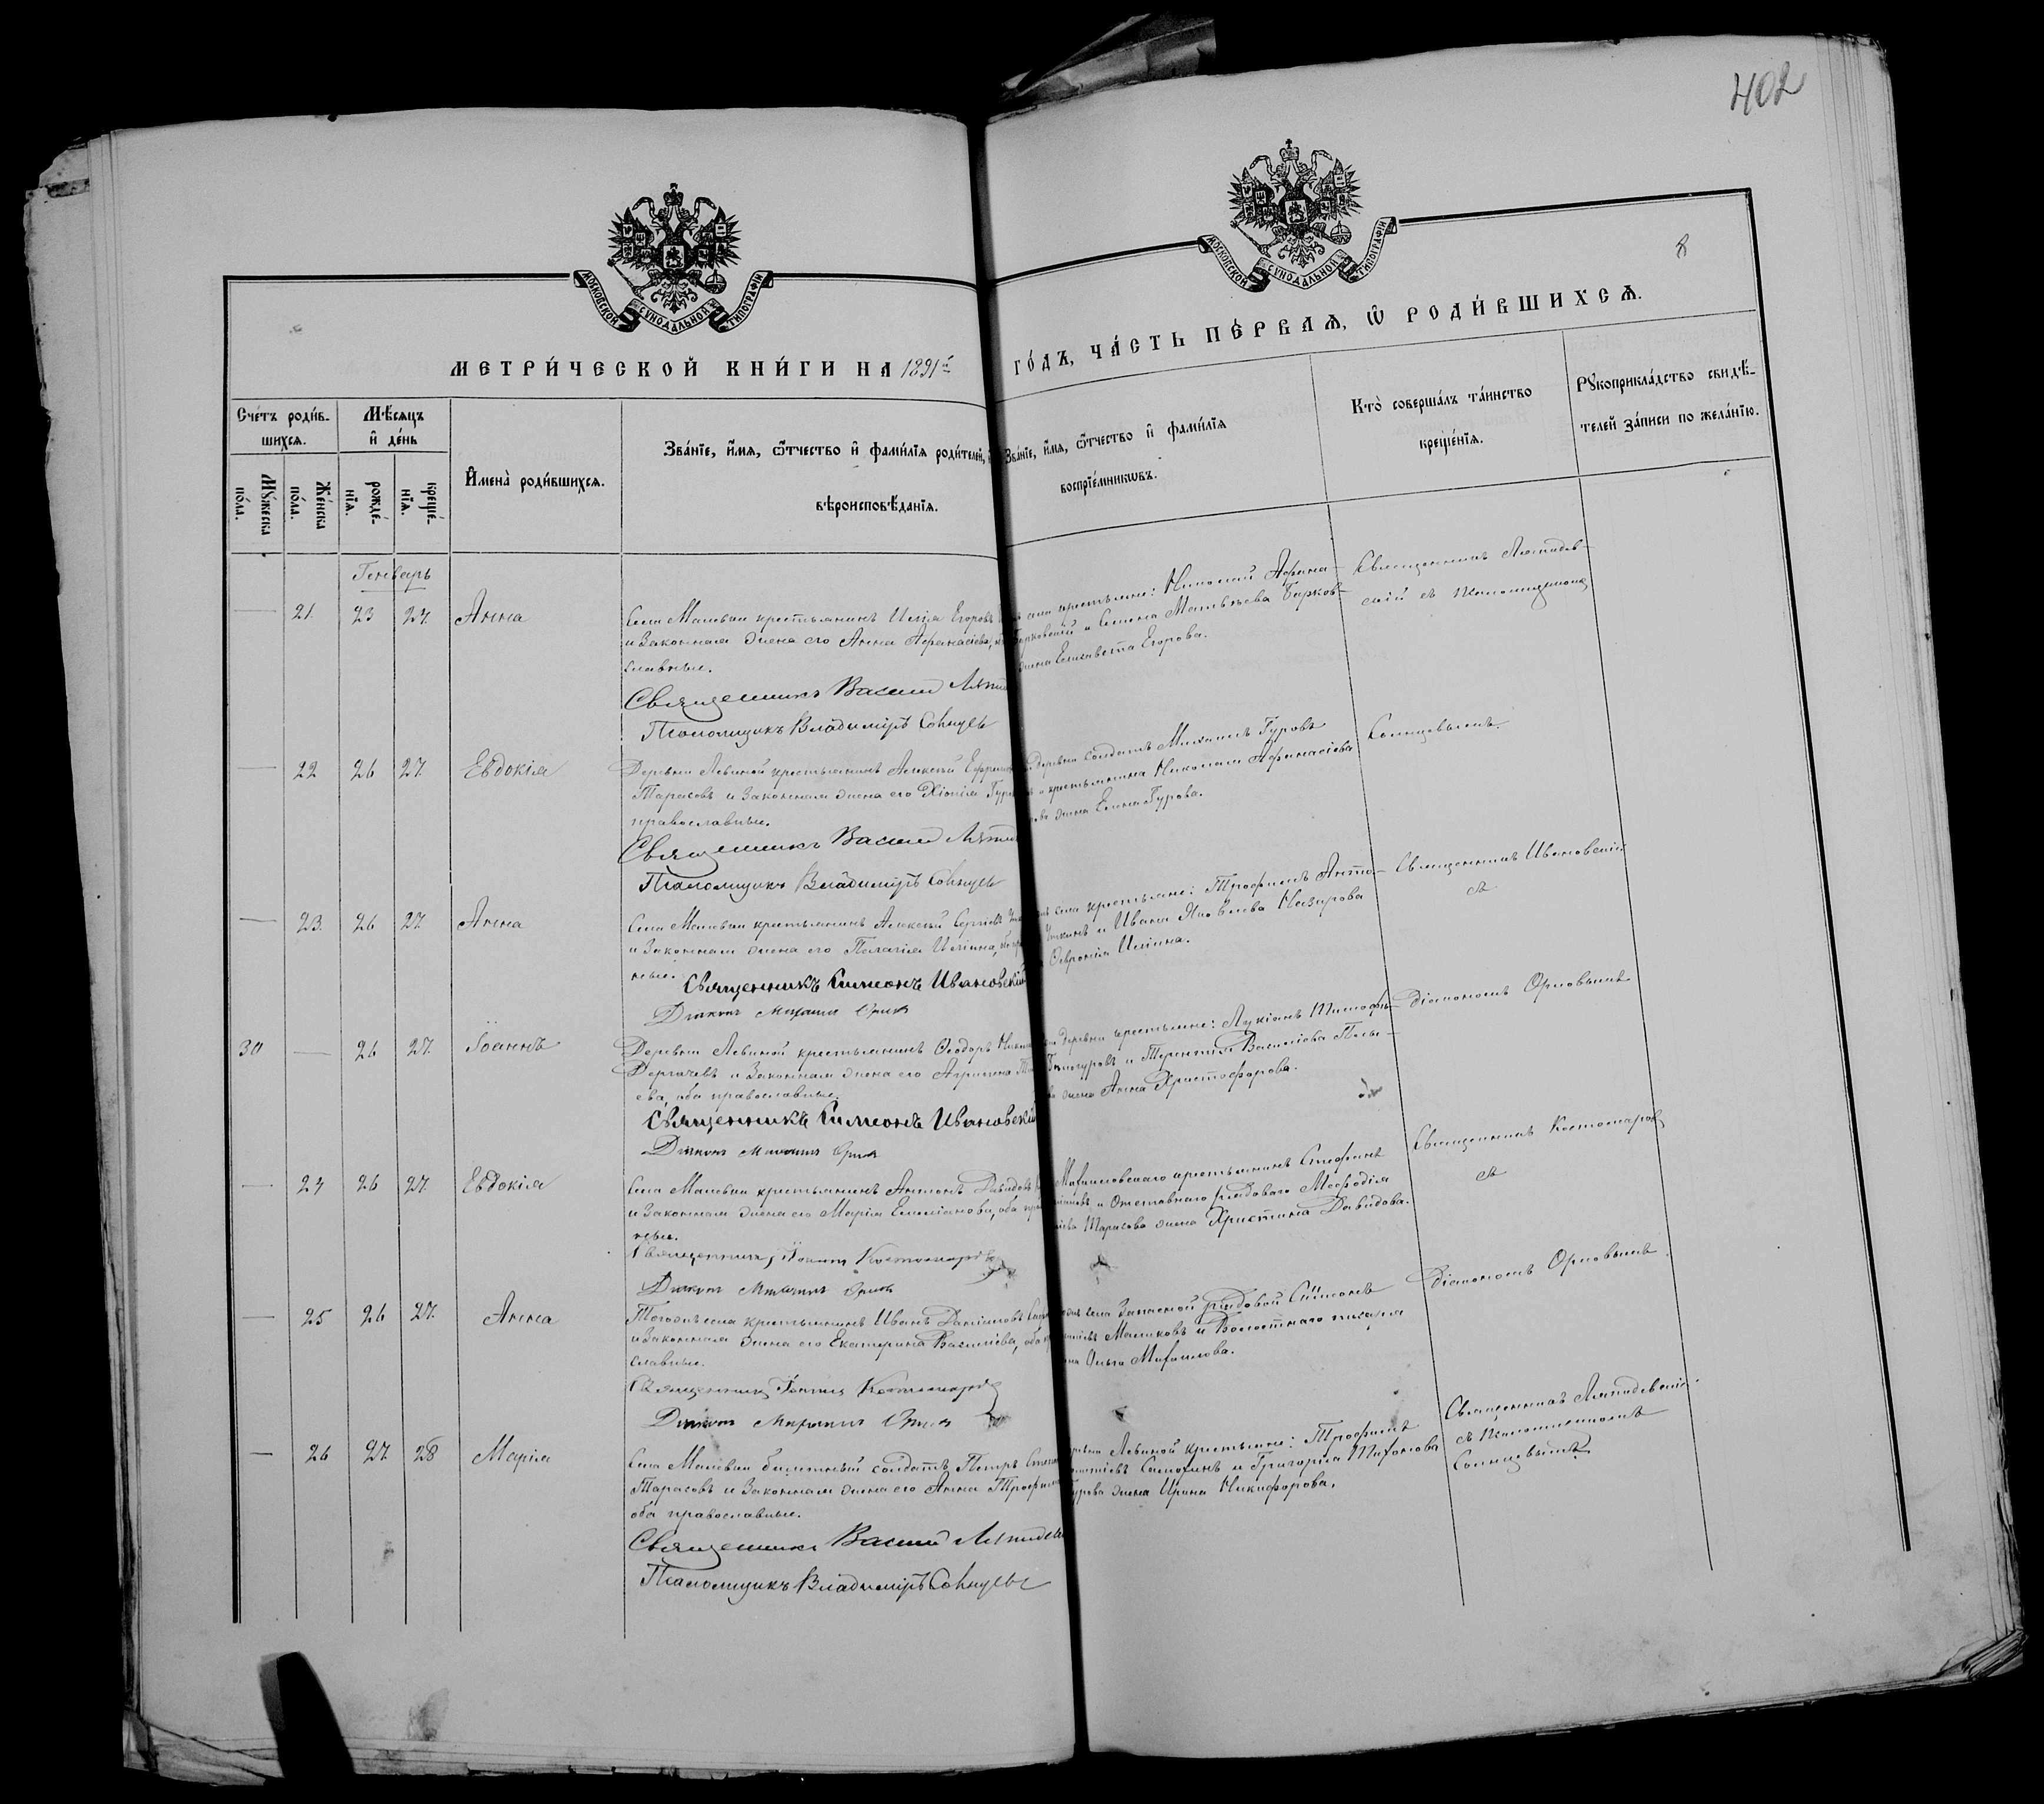 402
8
МОСКОВСКОЙ СѴНОДАЛЬНОЙ ТИПОГРАФІИ
МОСКОВСКОЙ СѴНОДАЛЬНОЙ ТИПОГРАФІИ
МЕТРИ́ЧЕСКОЙ КНИ́ГИ НА 1891й ГО́ДЪ, ЧА́СТЬ ПЕ́РВАѦ, Ѽ РОДИ́ВШИХСѦ.
Сче́тъ роди́в-
шихсѧ.
Мꙋ́жеска по́ла.
Же́нска по́ла.
Мѣ́сѧцъ и҆ де́нь
рожде́-нїѧ.
креще́-нїѧ.
И҆мена̀ роди́вшихсѧ.
Зва́нїе, и҆́мѧ, ѻ҆́тчество и҆ фами́лїѧ роди́телей,
вѣроисповѣ́данїѧ.
Зва́нїе, и҆́мѧ, ѻ҆́тчество и҆ фами́лїѧ
воспрїе́мникѡвъ.
Кто̀ соверша́лъ та́инство
креще́нїѧ.
Рꙋкоприкла́дство свидѣ́-
телей за́писи по жела́нїю.
Генварь
21. 23 27. Анна
Села Маловки крестьянинъ Илія Егоровъ
и законная жена его Анна Афанасіева,
славные.
Священникъ Василій
Псаломщикъ Владиміръ Солнцевъ
села крестьяне: Николай Афана-
Барковскій и Семена Матвѣева Барков-
жена Елизавета Егорова.
Священникъ Ляпидев-
скій съ псаломщикомъ
22 26 27. Евдокія
Деревни Левиной крестьянинъ Алексѣй
Тарасовъ и законная жена его Хіонія
православные.
Священникъ Василій
Псаломщикъ Владиміръ Солнцевъ
деревни солдатъ Михаилъ Гуровъ
и крестьянина Николая Афанасіева
жена Елена Гурова.
Солнцевымъ.
23. 26 27. Анна
Села Маловки крестьянинъ Алексѣй Сергѣевъ
и законная жена его Пелагія Иліина,
ные.
Священникъ Симеонъ Ивановскій
Діаконъ Михаилъ Орловъ
села крестьяне: Трофимъ Анто-
и Ивана Яковлева Назарова
Февронія Иліина.
Священникъ Ивановскій
съ
30 26 27. Іоаннъ
Деревни Левиной крестьянинъ Ѳеодоръ
Дергачевъ и законная жена его Агрипена
ева, оба православные.
Священникъ Симеонъ Ивановскій
Діаконъ Михаилъ Орловъ
деревни крестьяне: Лукіанъ Тимофѣ-
и Терентія Василіева
жена Анна Христофорова.
Діакономъ Орловымъ
24 26 27. Евдокія
Села Маловки крестьянинъ Антонъ Давидовъ
и законная жена его Марія Емиліанова, оба
ные.
Священникъ Іоаннъ Костомаровъ
Діаконъ Михаилъ Орловъ
Михайловскаго крестьянинъ Стефанъ
и отставнаго рядоваго Меѳодія
Тарасова жена Христина Давидова.
Священникъ Костомаровъ
съ
25 26 27. Анна
Тогоже села крестьянинъ Иванъ Даніиловъ
и законная жена его Екатерина Василіева, оба
славные.
Священникъ Іоаннъ Костомаровъ
Діаконъ Михаилъ Орловъ
села запасной рядовой Симеонъ
Маликовъ и Волостнаго писаря
Ольга Михаилова.
Діакономъ Орловымъ
26 27. 28 Марія
Села Маловки билетный солдатъ Петръ
Тарасовъ и законная жена его Анна
оба православные.
Священникъ Василій
Псаломщикъ Владиміръ Солнцевъ
Левиной крестьяне: Трофимъ
и Григорія Тихонова
Гурова жена Ирина Никифорова.
Священникъ Ляпидевскій
съ псаломщикомъ
Солнцевымъ